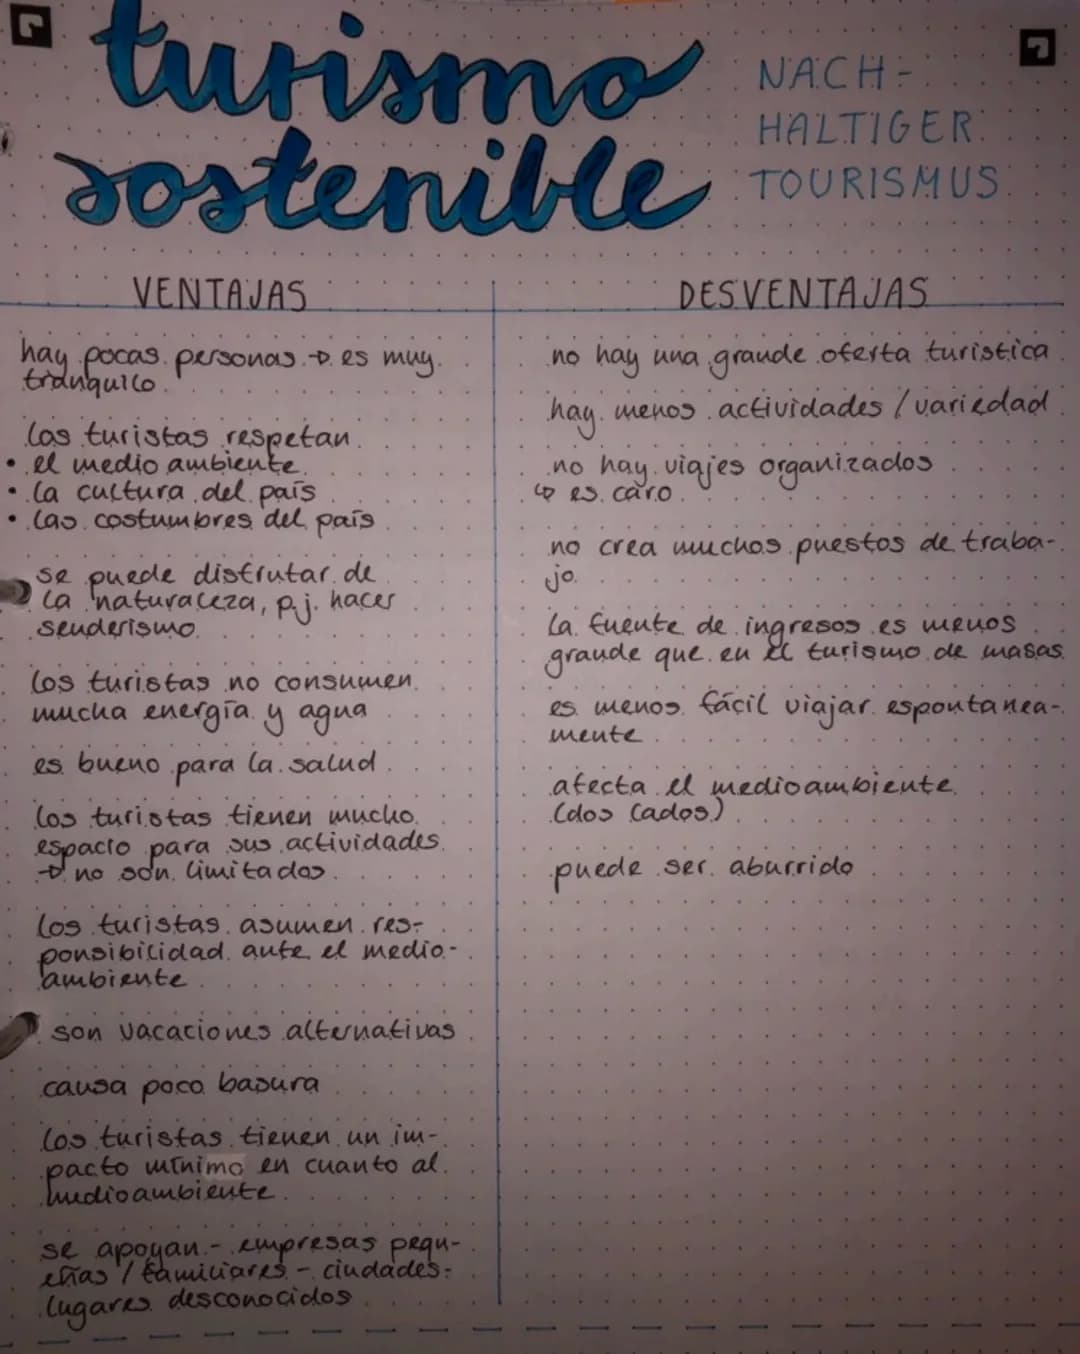 turismo
sostenible
NACH-
HALTIGER
TOURISMUS
VENTAJAS
hay pocas personas → es muy
tranquilo
los turistas respetan
• el medio ambiente
• la cultura del país
• las costumbres del país
se puede disfrutar de
la naturaleza, p.j. hacer
senderismo
los turistas no consumen
mucha energía y agua
es bueno para la salud
los turistas tienen mucho
espacio para sus actividades
→ no son limitados
los turistas asumen res-
ponsibilidad ante el medio-
ambiente
son vacaciones alternativas
causa poco basura
los turistas tienen un im-
pacto mínimo en cuanto al
medioambiente
se apoyan - empresas pequ-
eñas / familiares - ciudades-
lugares desconocidos
DESVENTAJAS
no hay una grande oferta turistica
hay menos actividades / variedad
no hay viajes organizados
↳ es caro
no crea muchos puestos de traba-
jo
la fuente de ingresos es menos
grande que en el turismo de masas
es menos fácil viajar espontanea-
mente
afecta el medioambiente
(dos lados)
puede ser aburrido